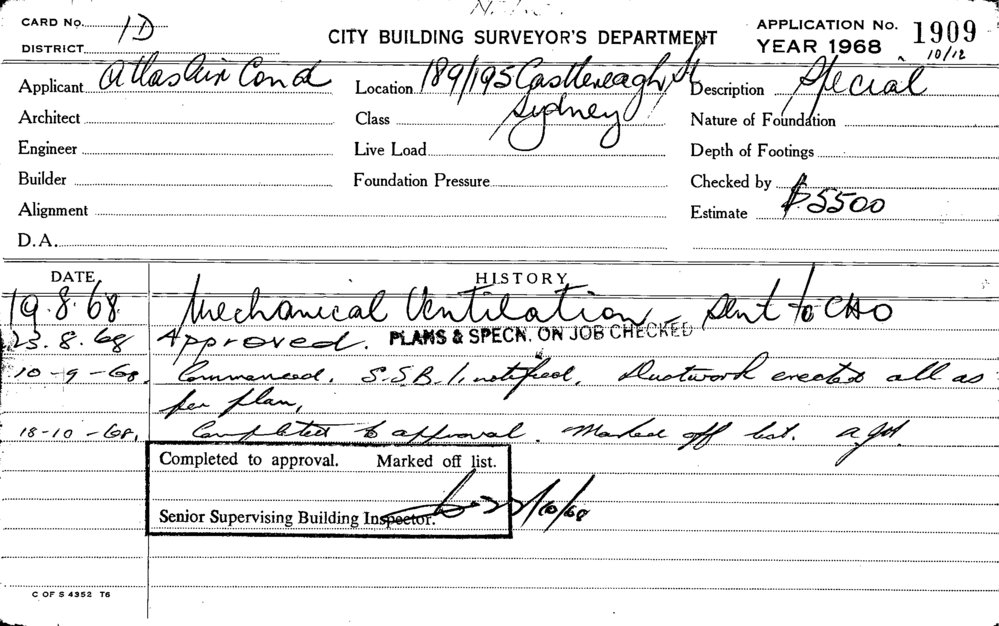 CARD No. 1D
DISTRICT
CITY BUILDING SURVEYOR'S DEPARTMENT
APPLICATION No. 1909
YEAR 1968 10/12
Applicant Atlas Air Cond
Location 189/195 Castlereagh St
Sydney
Description Special
Architect
Class
Nature of Foundation
Engineer
Live Load
Depth of Footings
Builder
Foundation Pressure
Checked by
Alignment
Estimate $5500
D.A.
DATE HISTORY
19.8.68 Mechanical Ventilation - Sent to CHO
23.8.68 Approved. PLANS & SPECN. ON JOB CHECKED
10-9-68. Commenced. S.S.B.I. notified. Ductwork erected all as
per plan,
18-10-68. Completed to approval. Marked off list.
Completed to approval. Marked off list.
Senior Supervising Building Inspector. 22/10/68
C OF S 4352 T6